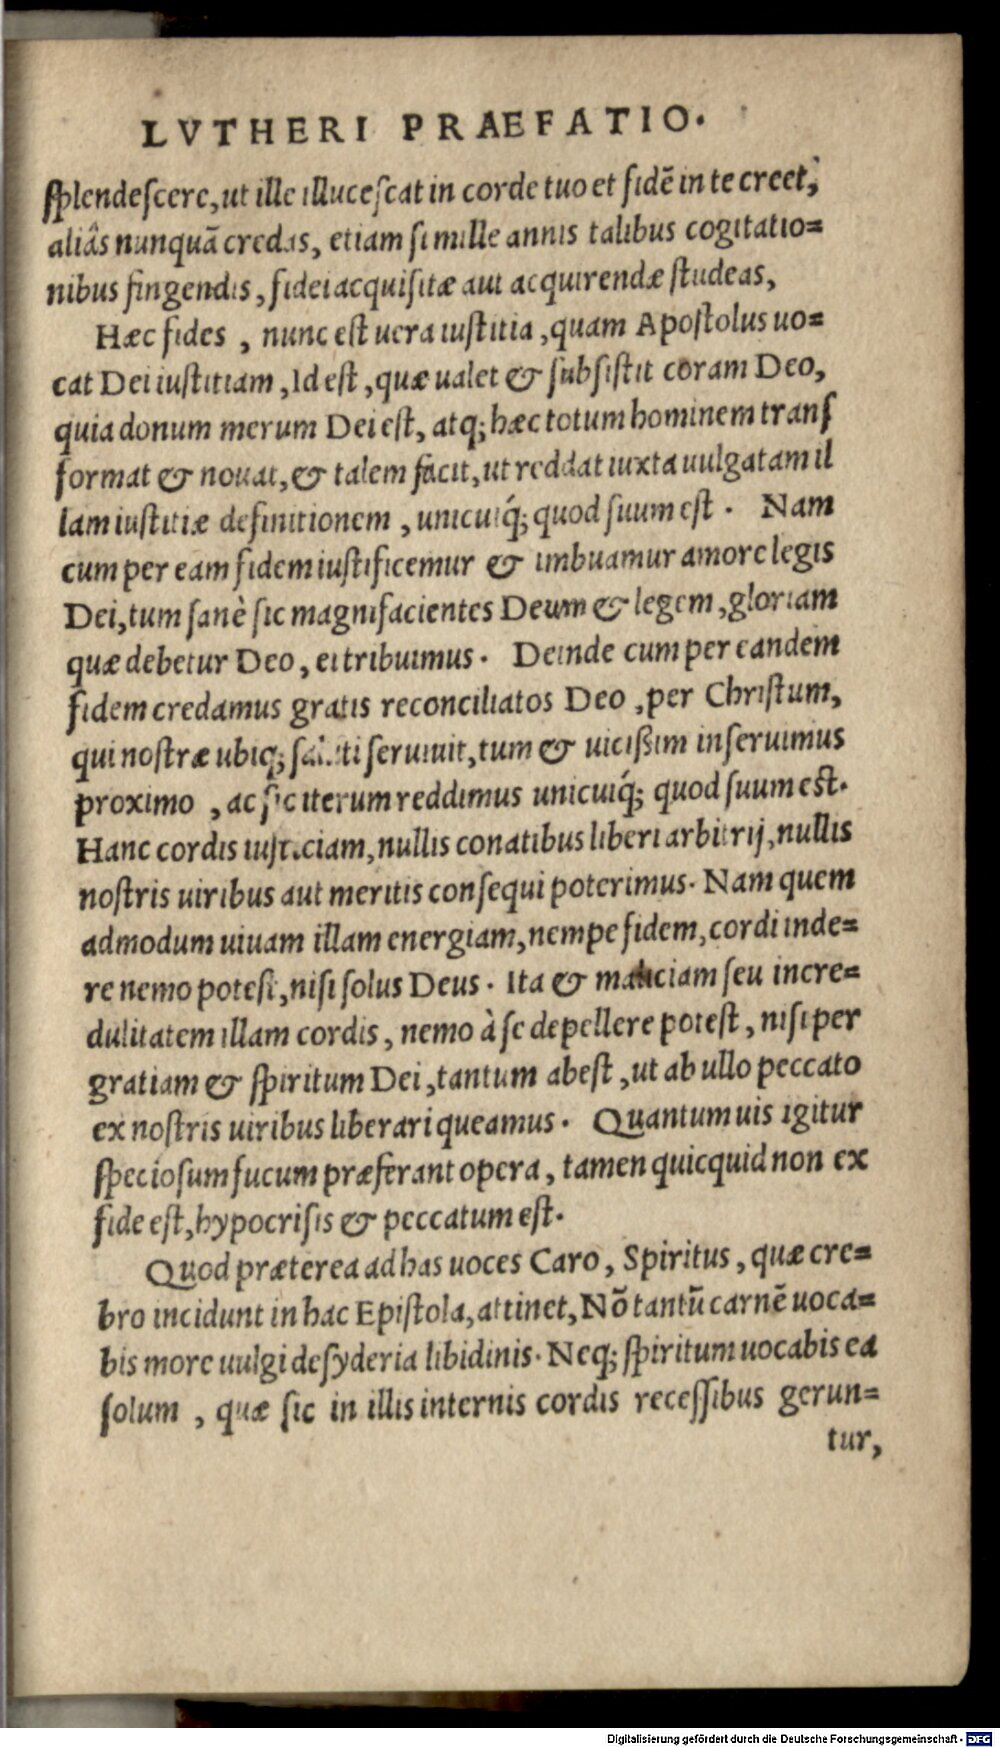 LVTHERI PRAEFATIO.
ſplendeſcere, ut ille illuceſcat in corde tuo et fidē in te creet,
aliâs nunquā credas, etiam ſi mille annis talibus cogitatio=
nibus fingendis, fidei acquiſitæ aut acquirendæ ſtudeas,
Hæc fides , nunc eſt uera iuſtitia , quam Apoſtolus uo=
cat Dei iuſtitiam , Id eſt , quæ ualet & ſubſiſtit coram Deo,
quia donum merum Dei eſt, atq; hæc totum hominem tranſ
format & nouat, & talem facit, ut reddat iuxta uulgatam il
lam iuſtitiæ definitionem , unicuiq́; quod ſuum eſt . Nam
cum per eam fidem iuſtificemur & imbuamur amore legis
Dei, tum ſanè ſic magnifacientes Deum & legem , gloriam
quæ debetur Deo, ei tribuimus. Deinde cum per eandem
fidem credamus gratis reconciliatos Deo , per Chriſtum,
qui noſtræ ubiq; ſaluti ſeruiuit, tum & uiciſsim inſeruimus
proximo , ac ſic iterum reddimus unicuiq́; quod ſuum eſt.
Hanc cordis iuſticiam, nullis conatibus liberi arbitrij, nullis
noſtris uiribus aut meritis conſequi poterimus. Nam quem
admodum uiuam illam energiam, nempe fidem, cordi inde=
re nemo poteſt, niſi ſolus Deus . Ita & maliciam ſeu incre=
dulitatem illam cordis, nemo à ſe depellere poteſt , niſi per
gratiam & ſpiritum Dei, tantum abeſt , ut ab ullo peccato
ex noſtris uiribus liberari queamus. Quantumuis igitur
ſpecioſum fucum præferant opera , tamen quicquid non ex
fide eſt, hypocriſis & peccatum eſt.
Quod præterea ad has uoces Caro, Spiritus , quæ cre=
bro incidunt in hac Epiſtola, attinet, Nō tantū carnē uoca=
bis more uulgi deſyderia libidinis. Neq; ſpiritum uocabis ea
ſolum , quæ ſic in illis internis cordis receſſibus gerun=
tur,
Digitalisierung gefördert durch die Deutsche Forschungsgemeinschaft - DFG